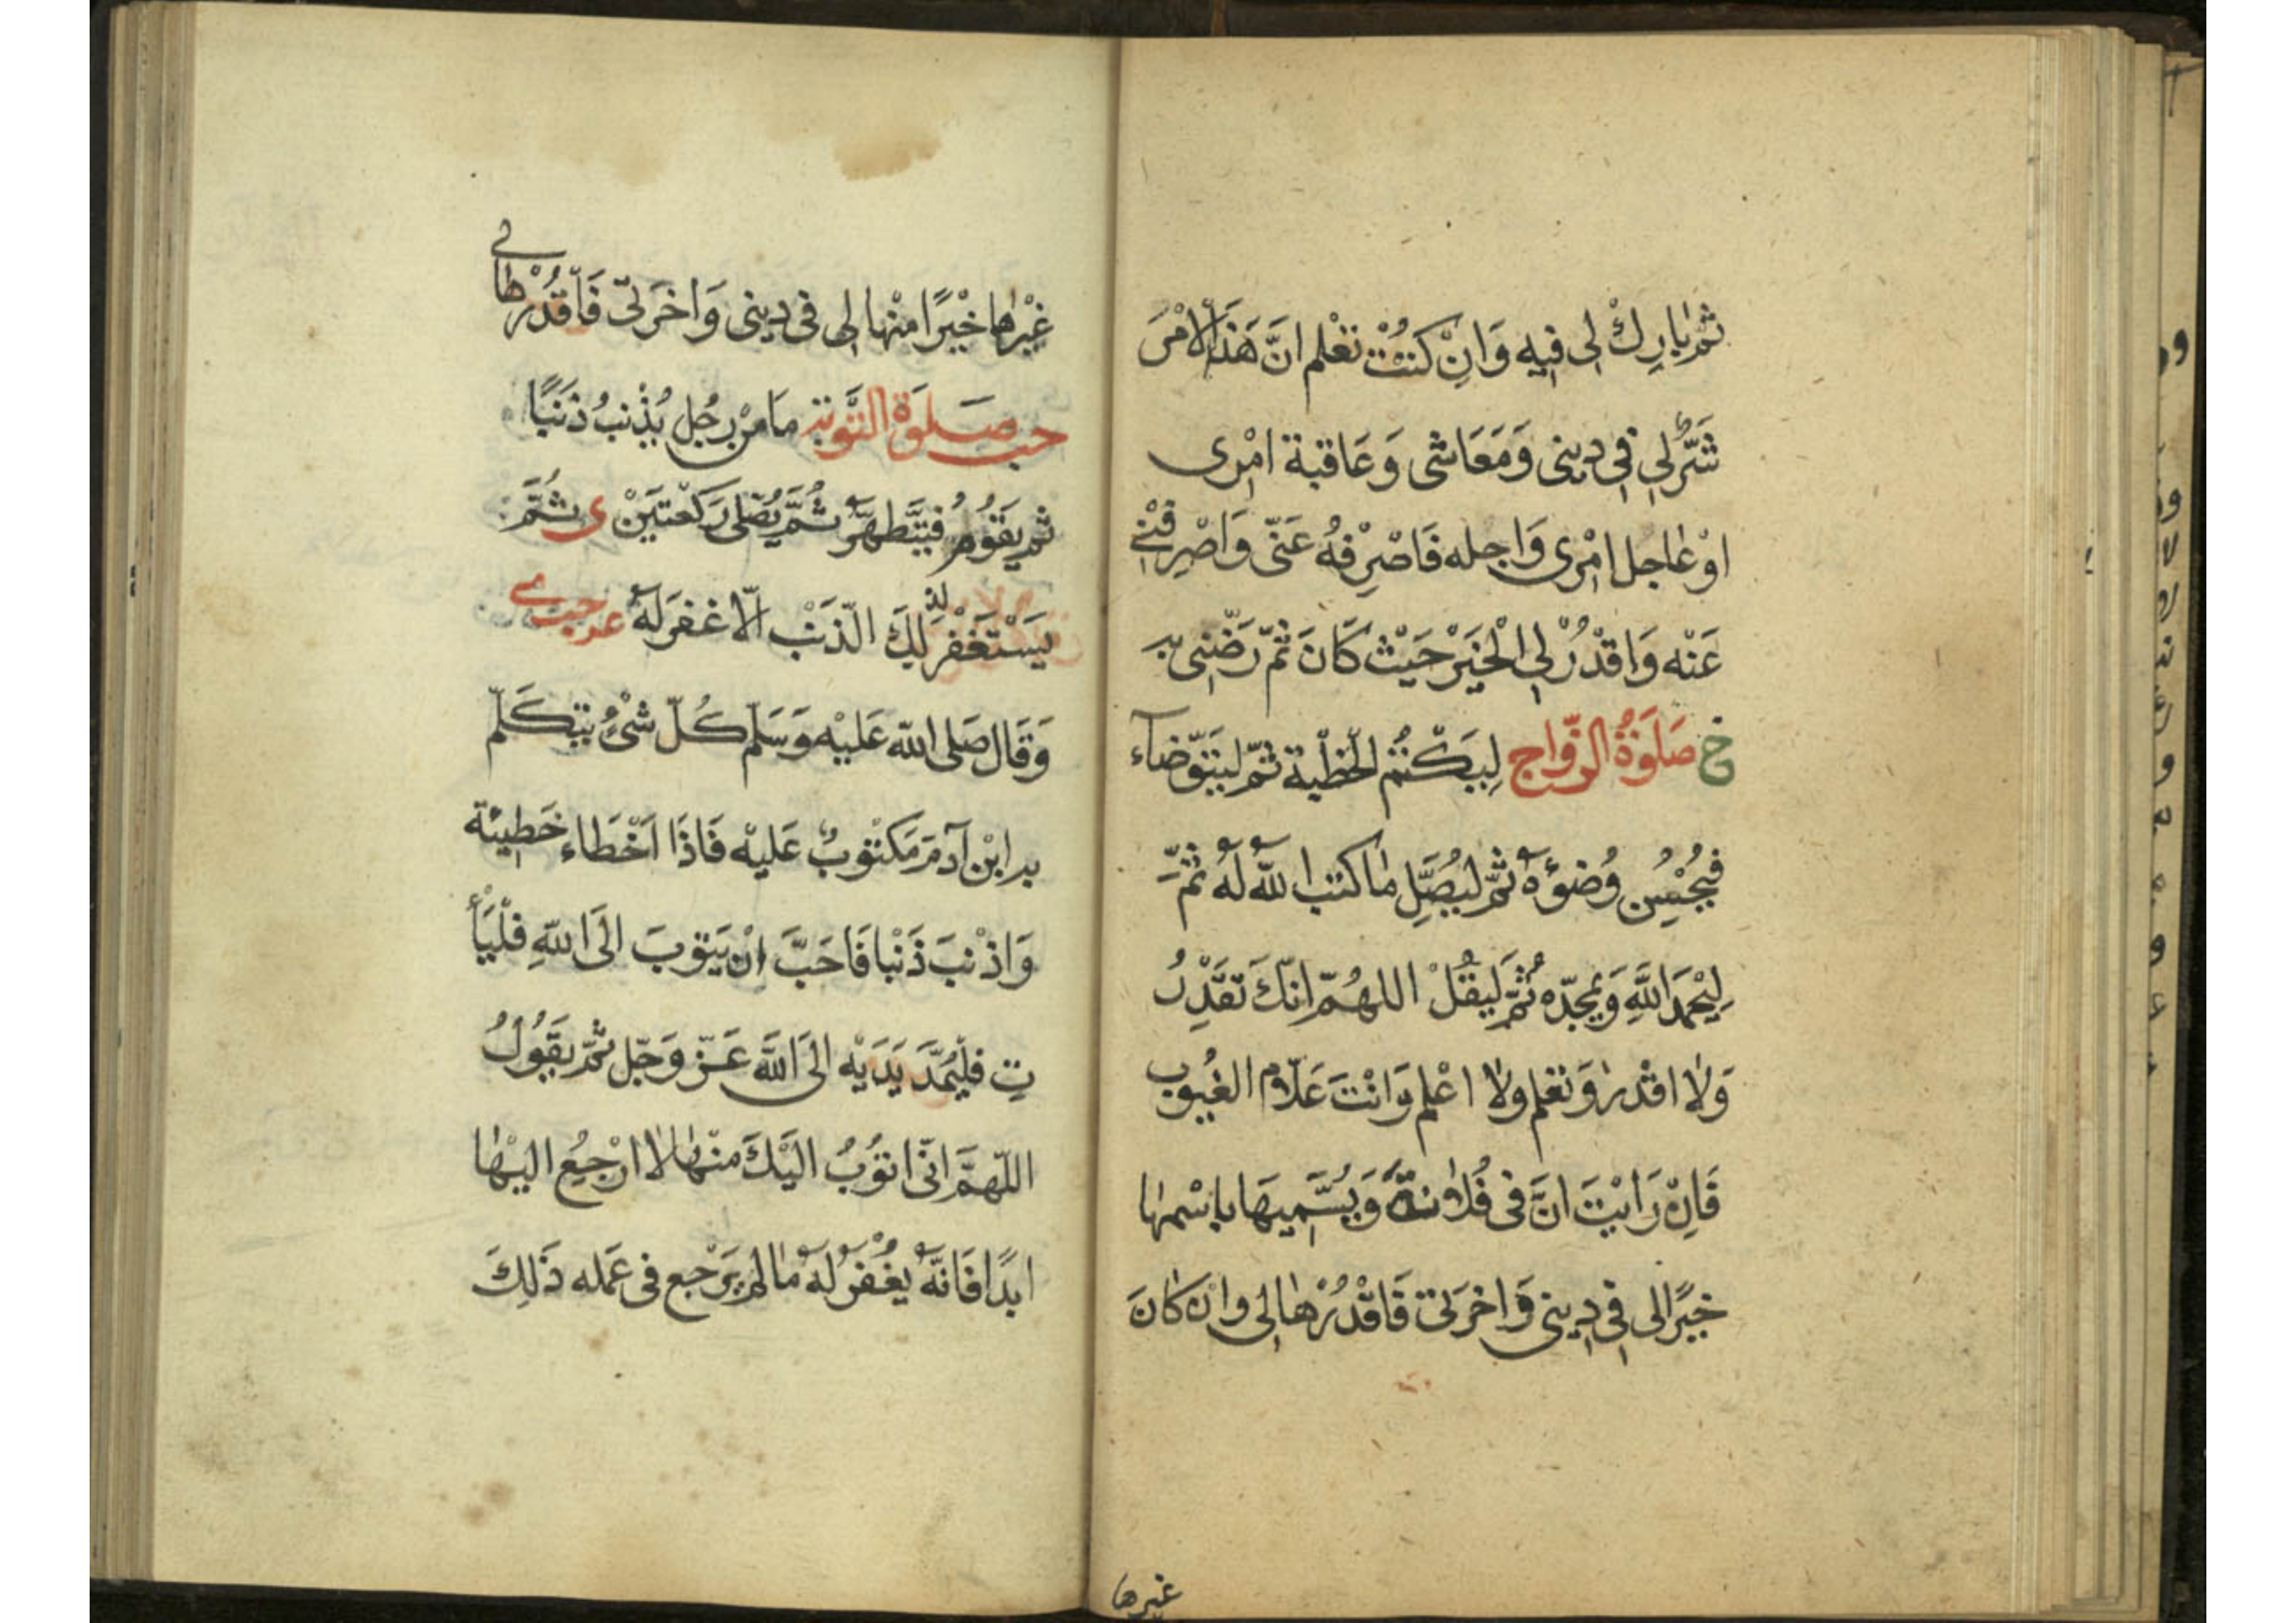 ثم بارك لى فيه وان كنت تعلم ان هذا الامر
شر لى فى دينى ومعاشى وعاقبة امرى
او عاجل امرى واجله فاصرفه عنى واصرفنى
عنه واقدر لى الخير حيث كان ثم رضنى به
خ صلوة الزواج ليكتم الخطبة ثم ليتوضاء
فيحسن وضوءه ثم ليصل ما كتب الله له ثم
ليحمد الله ويمجده ثم ليقل اللهم انك تقدر
ولا اقدر وتعلم ولا اعلم وانت علام الغيوب
فان رايت ان فى فلانة ويسميها باسمها
خيرا لى فى دينى واخرتى فاقدرها لى وان كان
غيرها
غيرها خيرا منها لى فى دينى واخرتى فاقدرها لى
حب صلوة التوبة ما من رجل يذنب ذنبا
ثم يقوم فيتطهر ثم يصلى ركعتين ى ثم
يستغفر لذلك الذنب الا غفر له عه حب ى
وقال صلى الله عليه وسلم كل شئ يتكلم
به ابن آدم مكتوب عليه فاذا اخطاء خطيئة
واذنب ذنبا فاحب ان يتوب الى الله فليأ
ت فليمد يديه الى الله عز وجل ثم يقول
اللهم انى اتوب اليك منها لا ارجع اليها
ابدا فانه يغفر له ما لم يرجع فى عمله ذلك